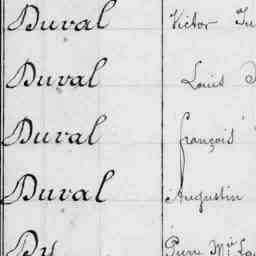 Duval Victor
Duval Louis
Duval françois
Duval Augustin
Dy Pierre Mie